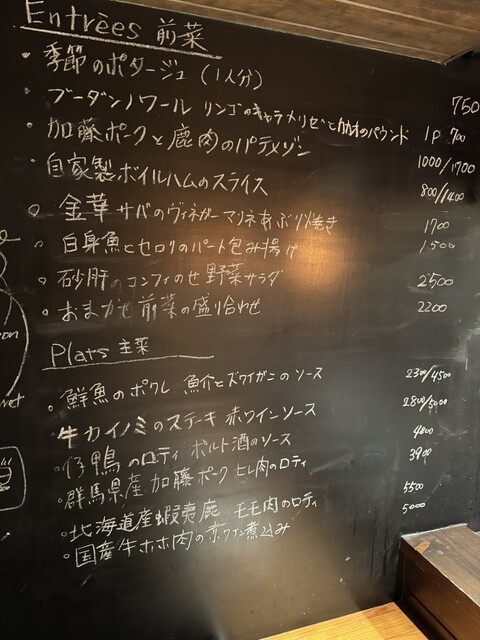 Entrèes 前菜
・季節のポタージュ (1人分) 750
・ブーダンノワール リンゴのキャラメリゼとカカオのパウンド 1P 700
・加藤ポークと鹿肉のパテメゾン 1000/1700
・自家製ボイルハムのスライス 800/1400
○ 金華サバのヴィネガーマリネあぶり焼き 1700
・白身魚とセロリのパート包み揚げ 1500
・砂肝のコンフィのせ野菜サラダ 2500
・おまかせ前菜の盛り合わせ 2200
Plats 主菜
・鮮魚のポワレ 魚介とズワイガニのソース 2300/4500
牛カイノミのステーキ 赤ワインソース 2800/5000
・仔鴨のロティ ポルト酒のソース 4800
・群馬県産 加藤ポーク ヒレ肉のロティ 3900
・北海道産蝦夷鹿 モモ肉のロティ 5500
・国産牛ホホ肉の赤ワイン煮込み 5000